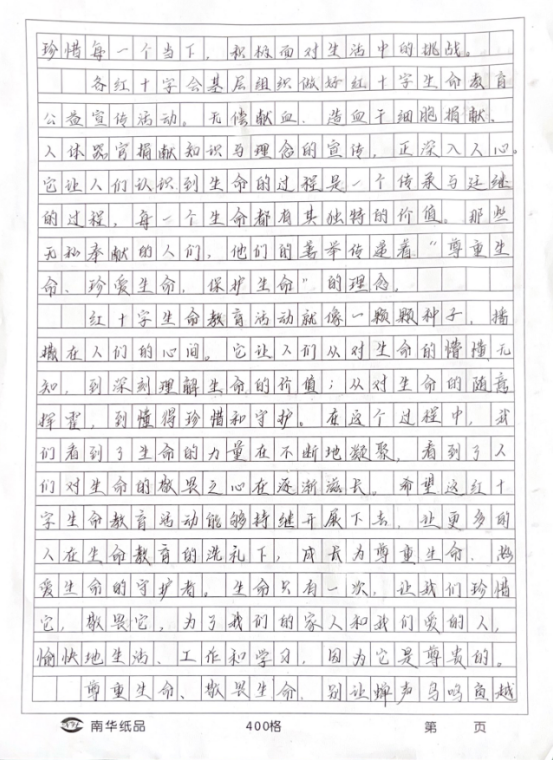 珍惜每一个当下，积极面对生活中的挑战。
各红十字会基层组织做好红十字生命教育
公益宣传活动。无偿献血、造血干细胞捐献、
人体器官捐献知识与理念的宣传，正深入人心。
它让人们认识到生命的过程是一个传承与延继
的过程，每一个生命都有其独特的价值。那些
无私奉献的人们，他们的善举传递着“尊重生
命、珍爱生命，保护生命”的理念。
红十字生命教育活动就像一颗颗种子，播
撒在人们的心间。它让人们从对生命的懵懂无
知，到深刻理解生命的价值；从对生命的随意
挥霍，到懂得珍惜和守护。在这个过程中，我
们看到了生命的力量在不断地凝聚，看到了人
们对生命的敬畏之心在逐渐滋长。希望这红十
字生命教育活动能够持继开展下去，让更多的
人在生命教育的洗礼下，成长为尊重生命、热
爱生命的守护者。生命只有一次，让我们珍惜
它，敬畏它，为了我们的家人和我们爱的人，
愉快地生活、工作和学习，因为它是尊贵的。
尊重生命、敬畏生命，别让蝉声鸟鸣负越
南华纸品 400格 第 页